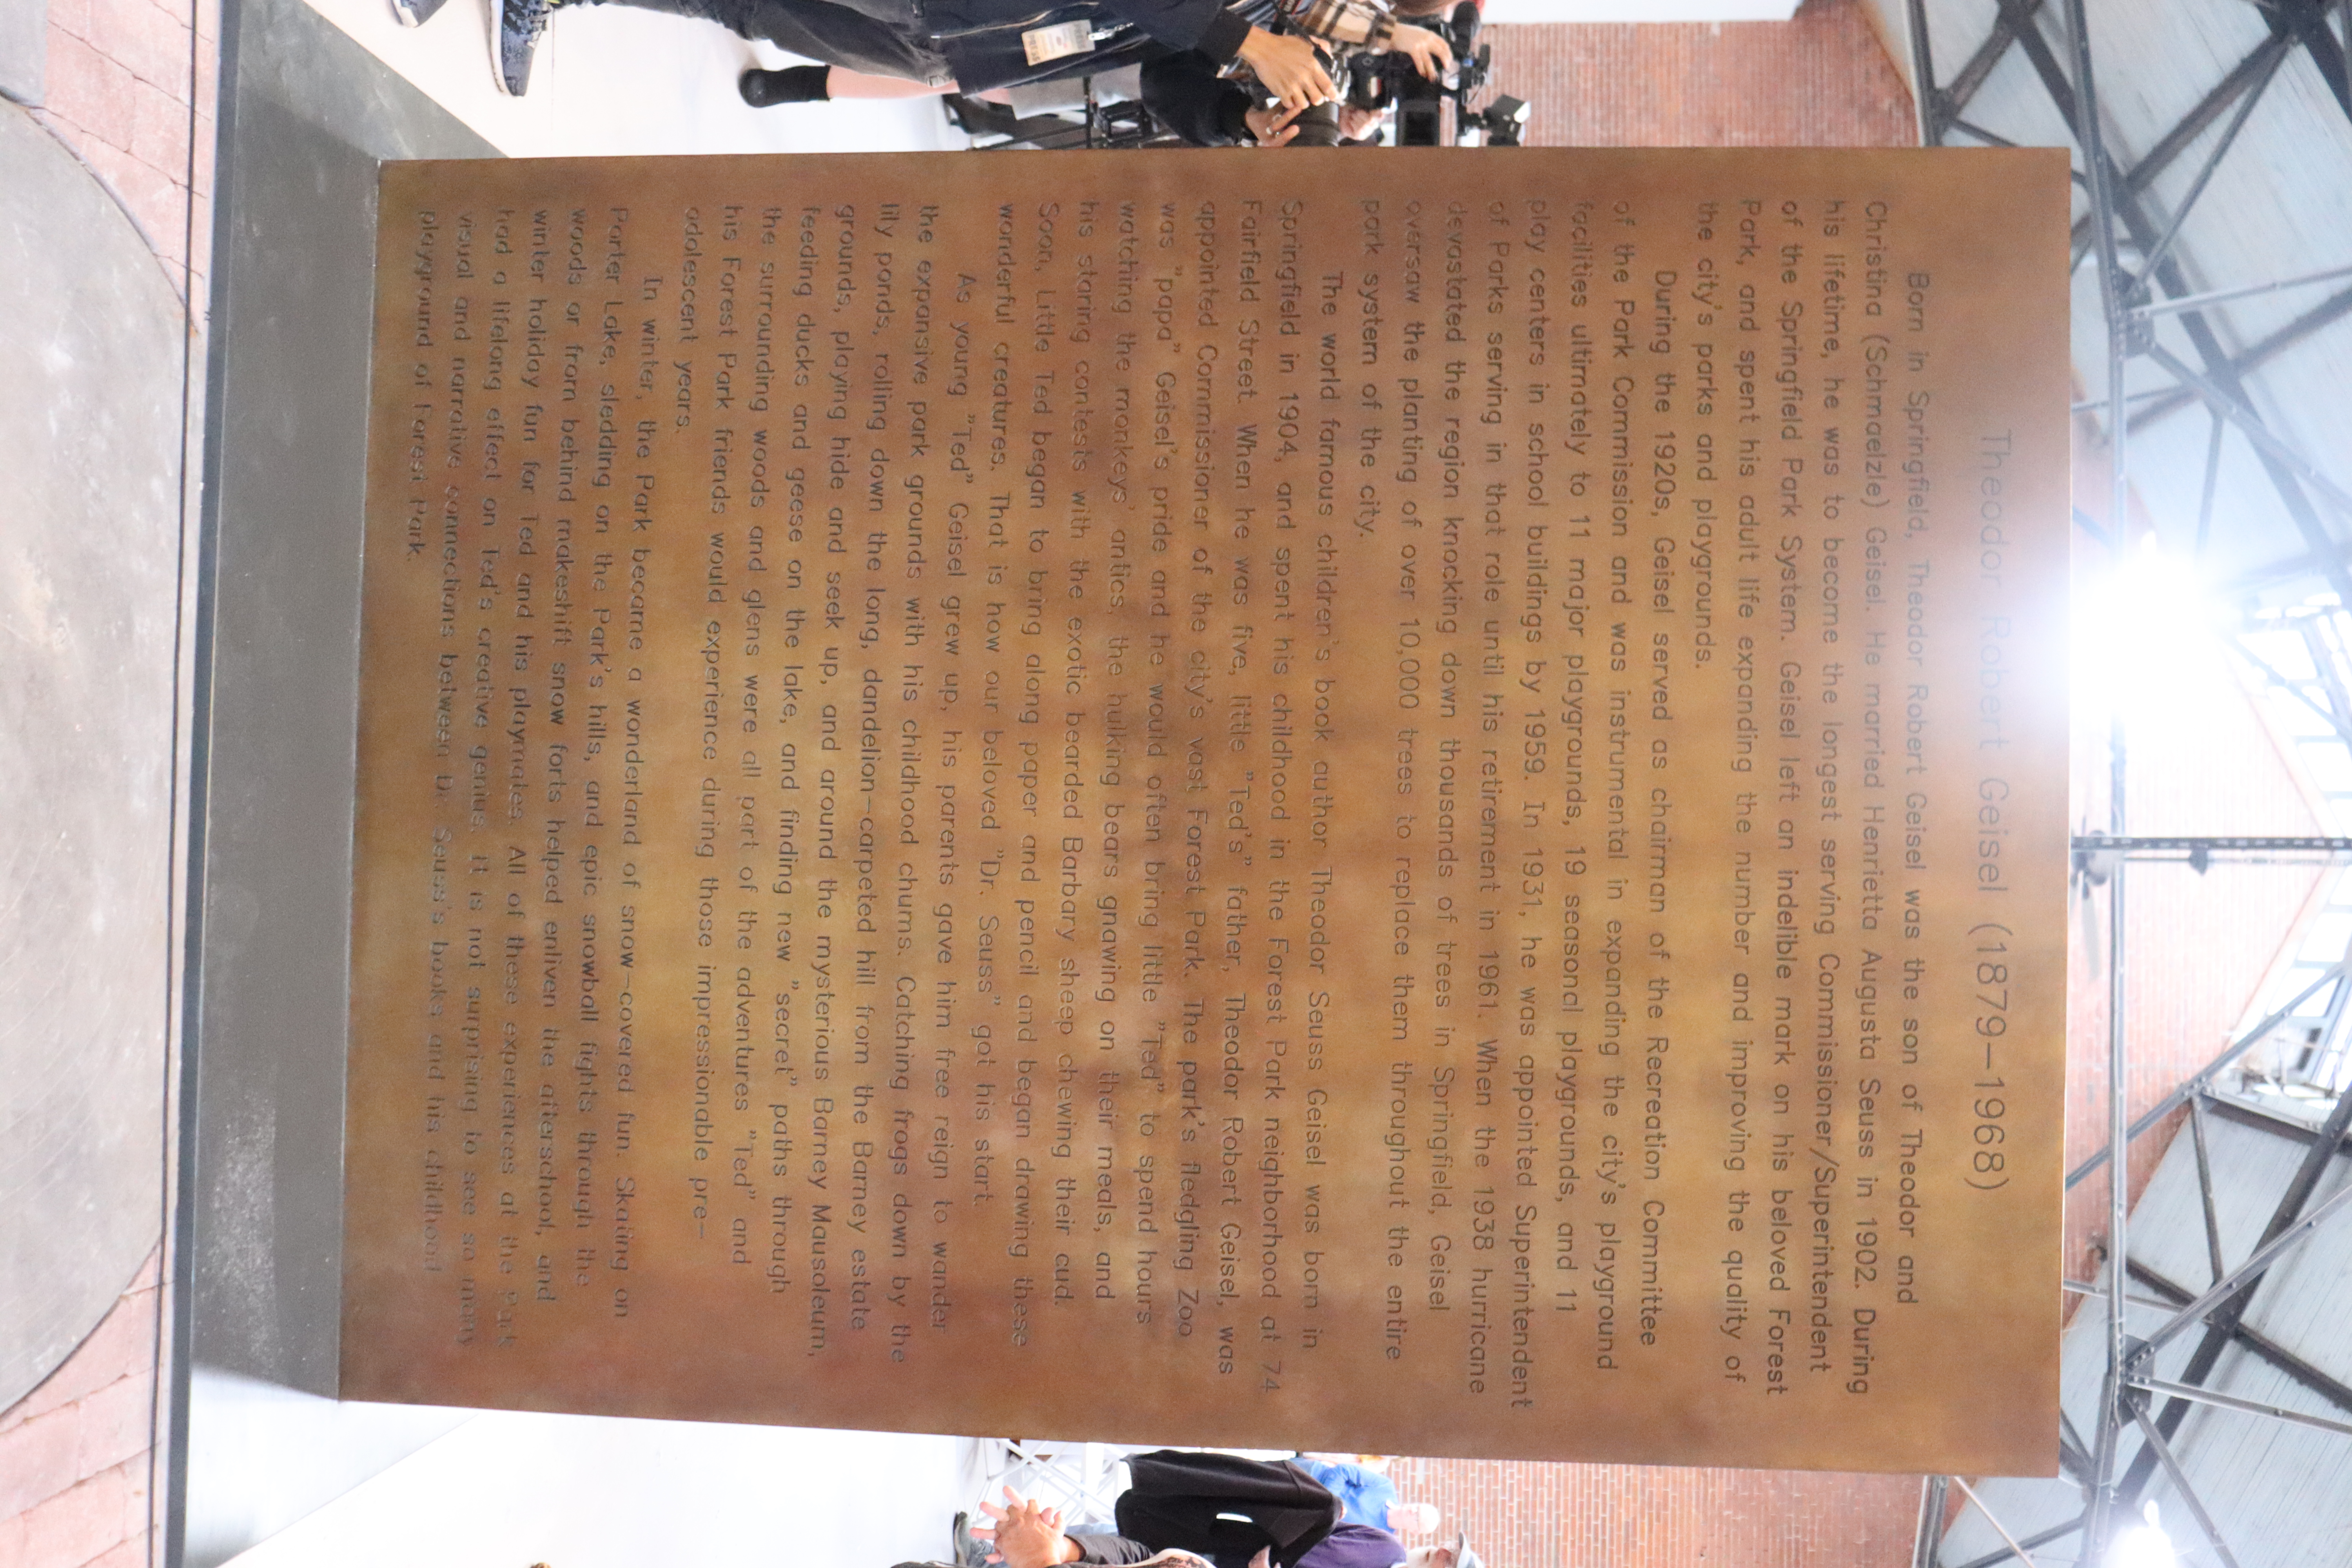 Theodor Robert Geisel (1879–1968)
Born in Springfield, Theodor Robert Geisel was the son of Theodor and
Christina (Schmaelzle) Geisel. He married Henrietta Augusta Seuss in 1902. During
his lifetime, he was to become the longest serving Commissioner/Superintendent
of the Springfield Park System. Geisel left an indelible mark on his beloved Forest
Park, and spent his adult life expanding the number and improving the quality of
the city's parks and playgrounds.
During the 1920s, Geisel served as chairman of the Recreation Committee
of the Park Commission and was instrumental in expanding the city's playground
facilities ultimately to 11 major playgrounds, 19 seasonal playgrounds, and 11
play centers in school buildings by 1959. In 1931, he was appointed Superintendent
of Parks serving in that role until his retirement in 1961. When the 1938 hurricane
devastated the region knocking down thousands of trees in Springfield, Geisel
oversaw the planting of over 10,000 trees to replace them throughout the entire
park system of the city.
The world famous children's book author Theodor Seuss Geisel was born in
Springfield in 1904, and spent his childhood in the Forest Park neighborhood at 74
Fairfield Street. When he was five, little "Ted's" father, Theodor Robert Geisel, was
appointed Commissioner of the city's vast Forest Park. The park's fledgling Zoo
was "papa" Geisel's pride and he would often bring little "Ted" to spend hours
watching the monkeys' antics, the hulking bears gnawing on their meals, and
his staring contests with the exotic bearded Barbary sheep chewing their cud.
Soon, Little Ted began to bring along paper and pencil and began drawing these
wonderful creatures. That is how our beloved "Dr. Seuss" got his start.
As young "Ted" Geisel grew up, his parents gave him free reign to wander
the expansive park grounds with his childhood chums. Catching frogs down by the
lily ponds, rolling down the long, dandelion-carpeted hill from the Barney estate
grounds, playing hide and seek up, and around the mysterious Barney Mausoleum,
feeding ducks and geese on the lake, and finding new "secret" paths through
the surrounding woods and glens were all part of the adventures "Ted" and
his Forest Park friends would experience during those impressionable pre-
adolescent years.
In winter, the Park became a wonderland of snow-covered fun. Skating on
Porter Lake, sledding on the Park's hills, and epic snowball fights through the
woods or from behind makeshift snow forts helped enliven the afterschool, and
winter holiday fun for Ted and his playmates. All of these experiences at the Park
had a lifelong effect on Ted's creative genius. It is not surprising to see so many
visual and narrative connections between Dr. Seuss's books and his childhood
playground of Forest Park.